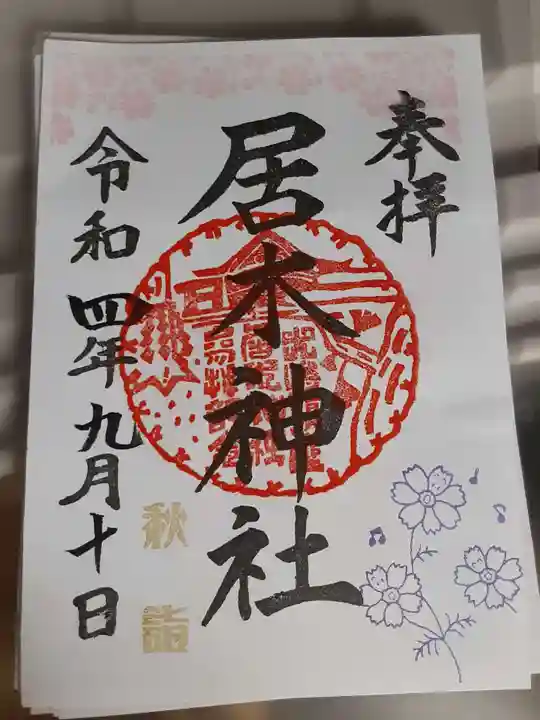 奉拝
居木神社
令和四年九月十日
秋詣